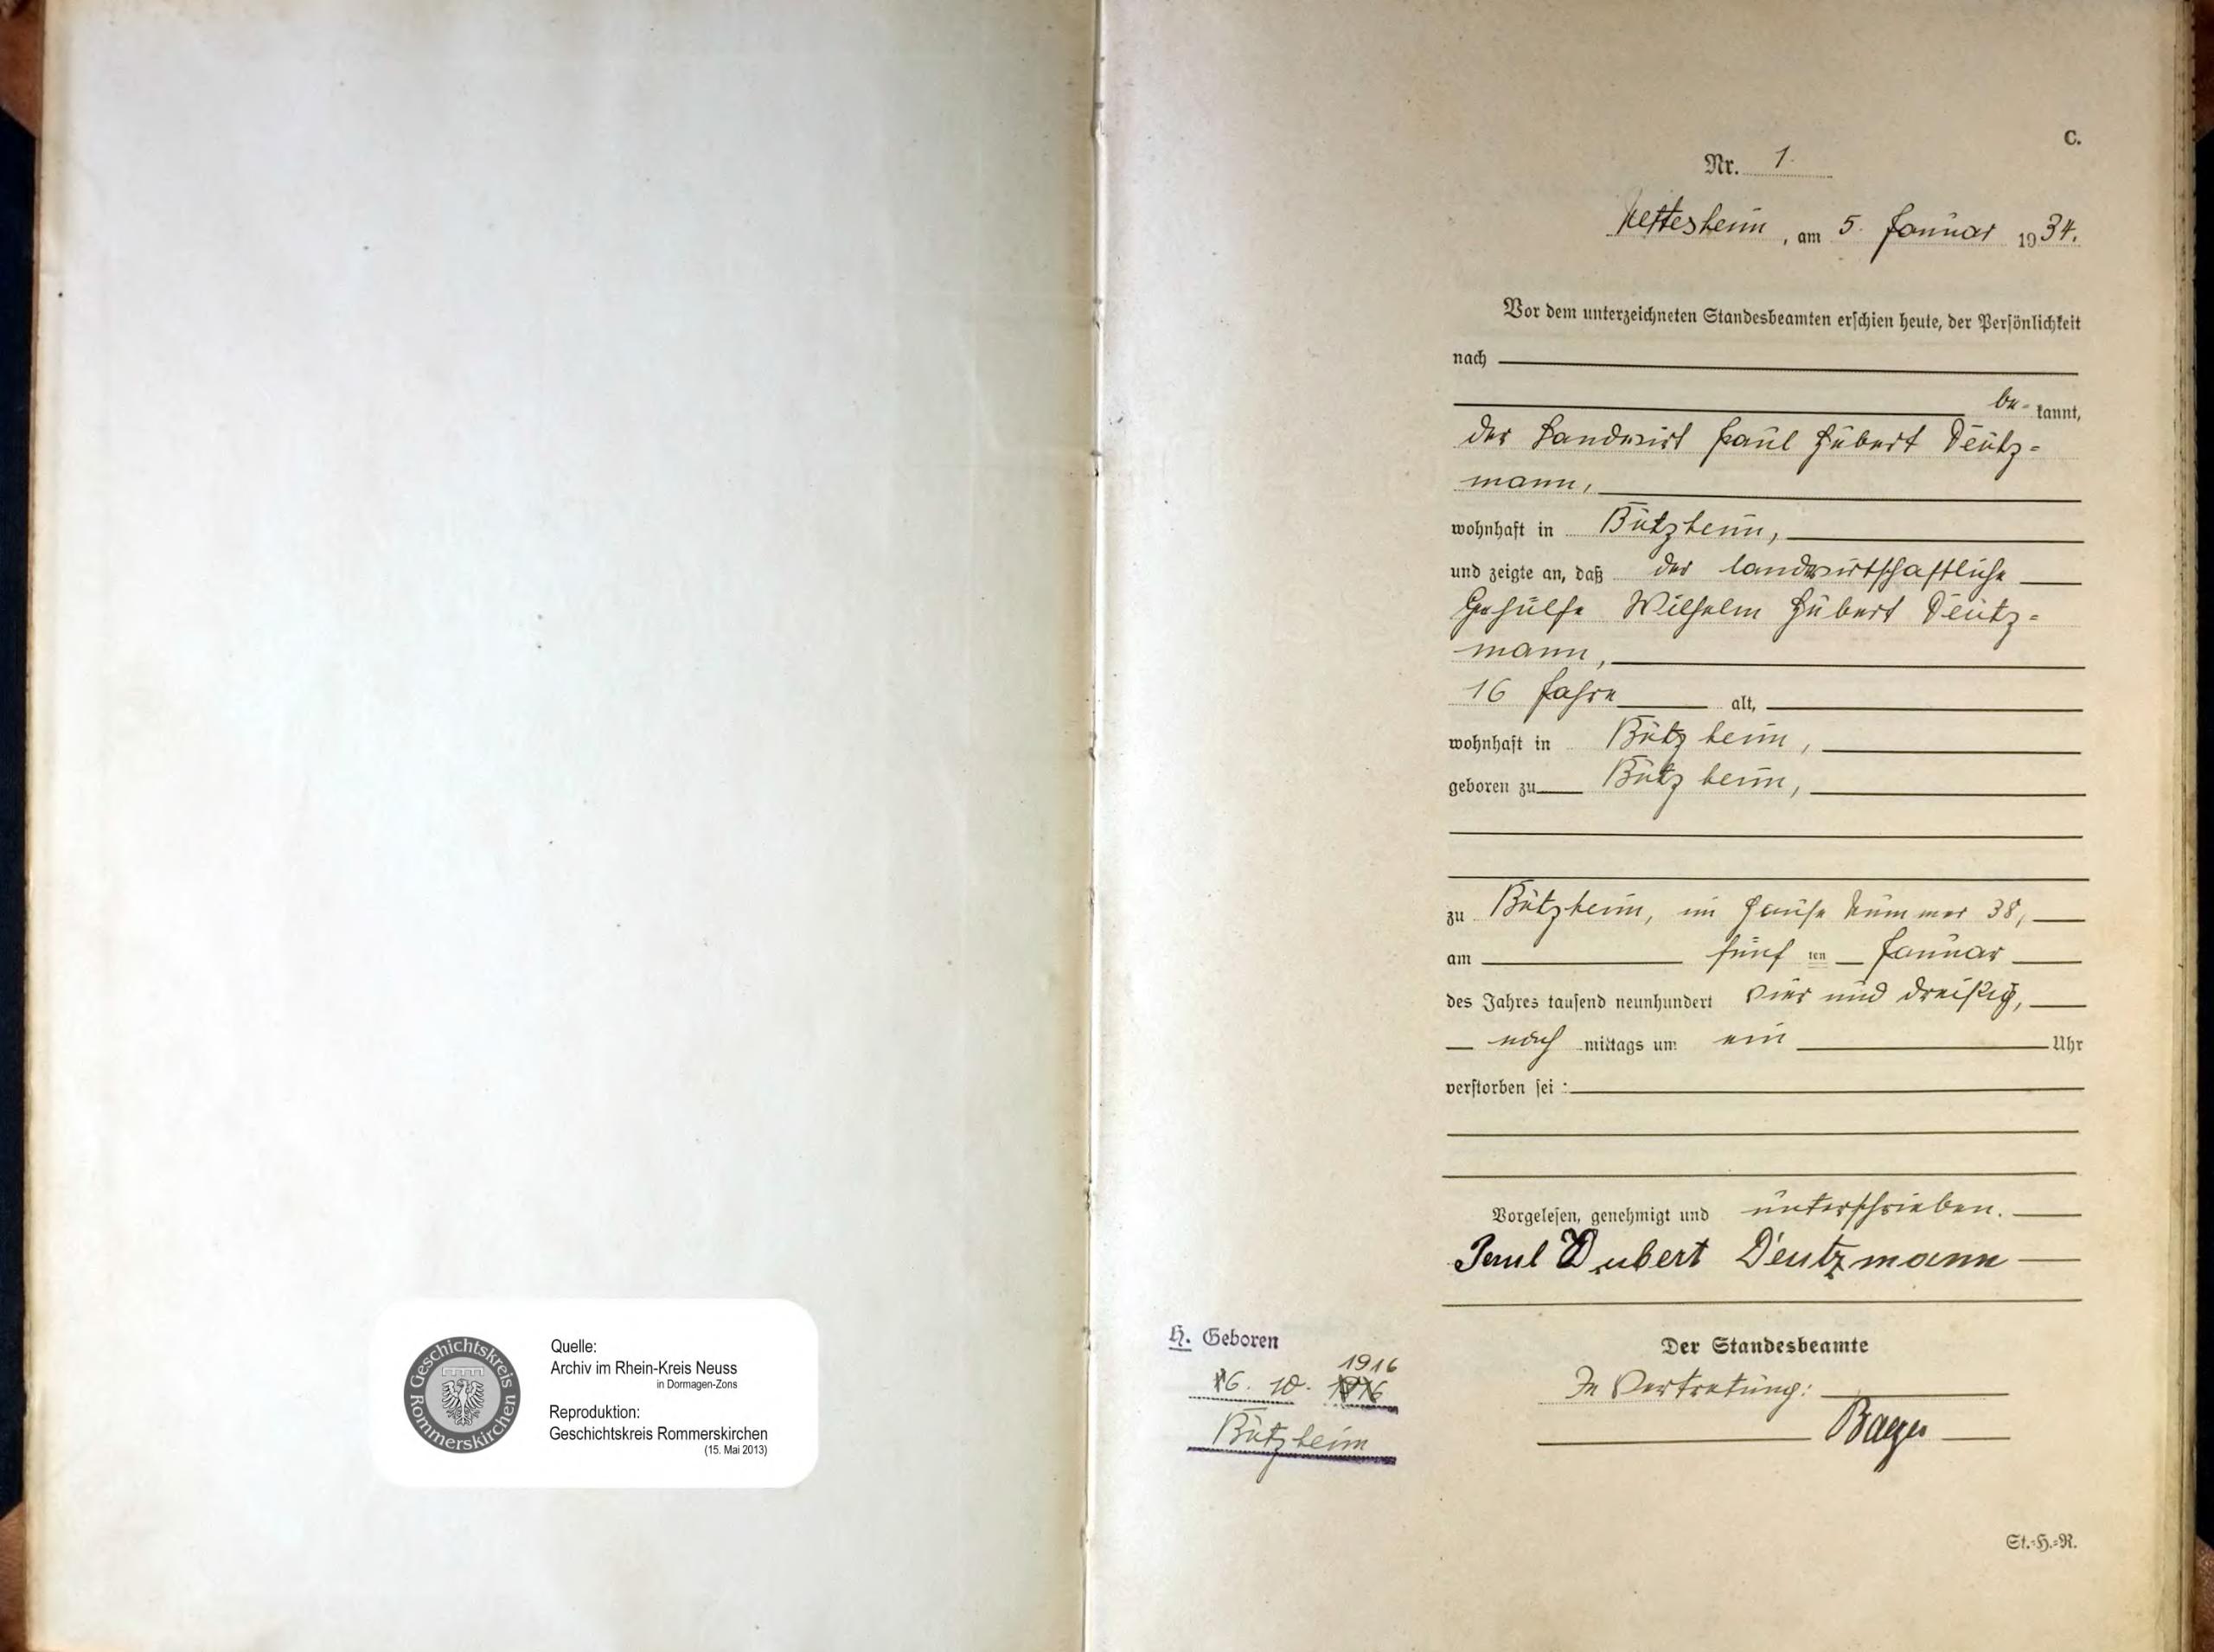 C.
Nr. 1.
Nettesheim, am 5. Januar 1934.
Vor dem unterzeichneten Standesbeamten erschien heute, der Persönlichkeit
nach
be= kannt,
der Landwirt Paul Hubert Deutz=
mann,
wohnhaft in Bützheim,
und zeigte an, daß der landwirtschaftliche
Gehülfe Wilhelm Hubert Deutz=
mann,
16 Jahre alt,
wohnhaft in Bützheim,
geboren zu Bützheim,
zu Bützheim, im Hause Nummer 38,
am fünf ten Januar
des Jahres tausend neunhundert vier und dreißig,
nach mittags um ein Uhr
verstorben sei :
Vorgelesen, genehmigt und unterschrieben.
Paul Hubert Deutzmann
Der Standesbeamte
In Vertretung:
H. Geboren
1916
10.
Bützheim
St.=H.=R.
Geschichtskreis Rommerskirchen
Quelle:
Archiv im Rhein-Kreis Neuss
in Dormagen-Zons
Reproduktion:
Geschichtskreis Rommerskirchen
(15. Mai 2013)